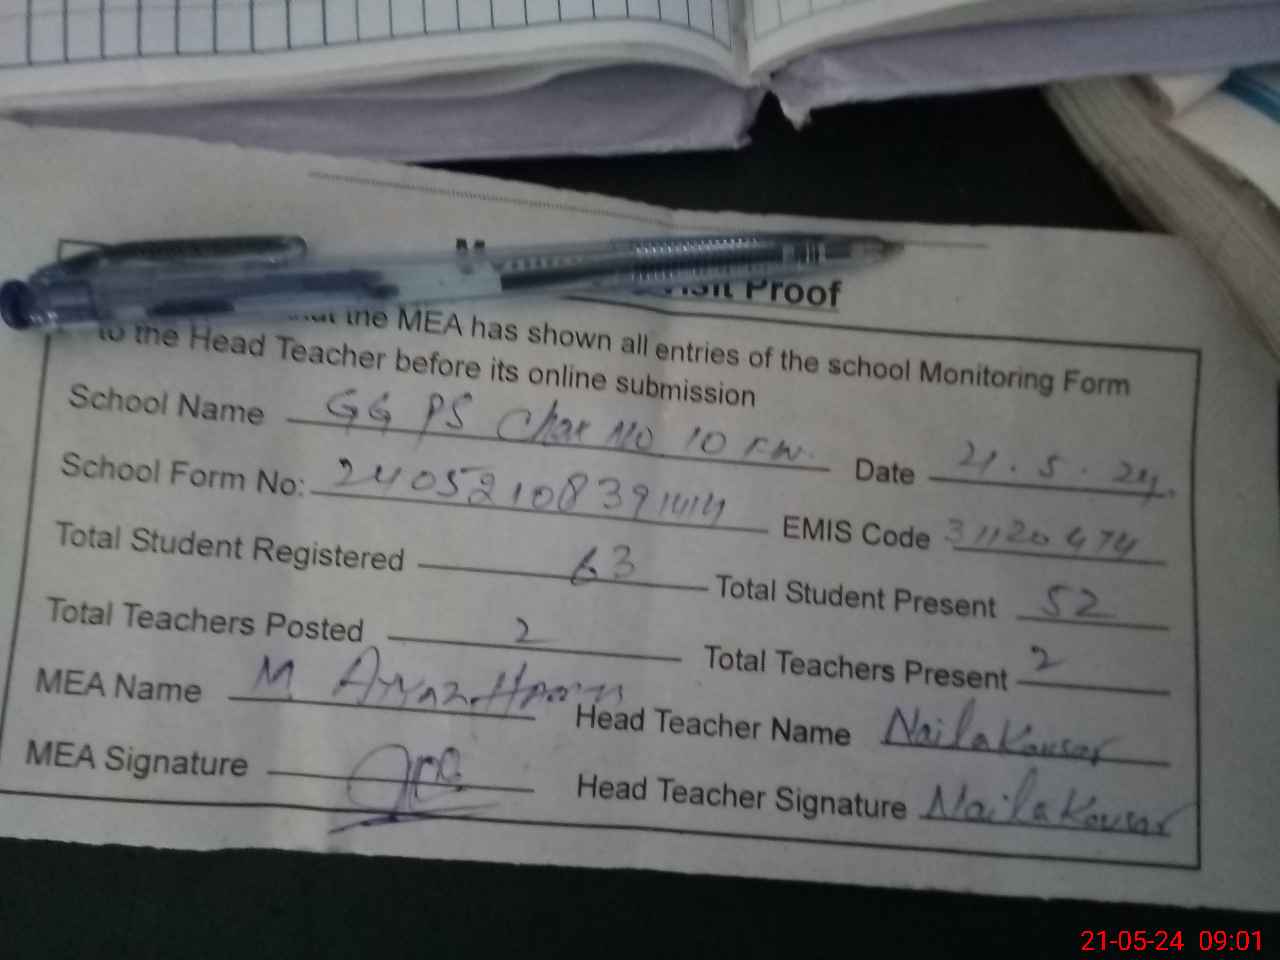 Visit Proof
that the MEA has shown all entries of the school Monitoring Form
to the Head Teacher before its online submission
School Name GGPS Chak No 10 F.W. Date 21.5.24
School Form No: 24052108391414 EMIS Code 31120474
Total Student Registered 63 Total Student Present 52
Total Teachers Posted 2 Total Teachers Present 2
MEA Name M Ayyaz Head Teacher Name Naila Kousar
MEA Signature Head Teacher Signature Naila Kousar
21-05-24 09:01